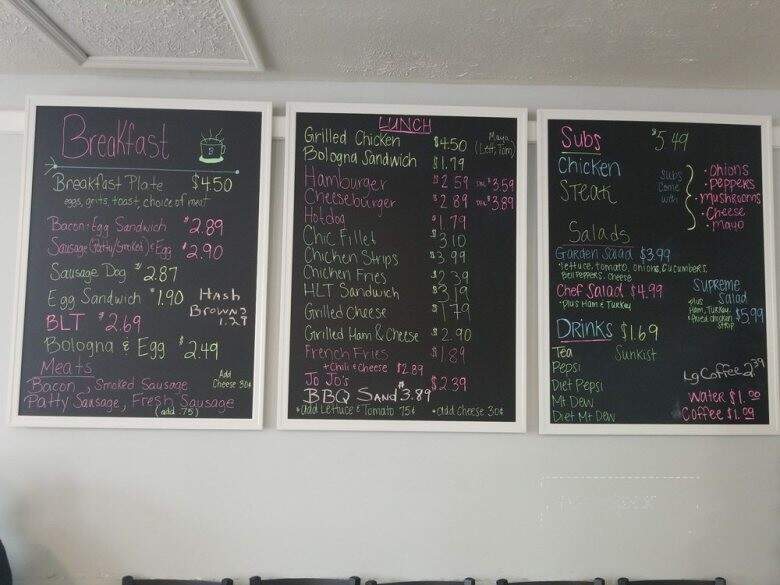 Breakfast
Breakfast Plate $4.50
eggs, grits, toast, choice of meat
Bacon & Egg Sandwich $2.89
Sausage (Patty/Smoked) & Egg $2.90
Sausage Dog $2.87
Egg Sandwich $1.90
Hash Browns 1.29
BLT $2.69
Bologna & Egg $2.49
Meats
Add Cheese 30¢
Bacon, Smoked Sausage
Patty Sausage, Fresh Sausage
(add .75)
LUNCH
Grilled Chicken $4.50 Mayo (Lett, Tom)
Bologna Sandwich $1.79
Hamburger $2.59 $3.59
Cheeseburger $2.89 $3.89
Hotdog $1.79
Chic Fillet $3.10
Chicken Strips $3.99
Chicken Fries $2.39
HLT Sandwich $3.19
Grilled Cheese $1.79
Grilled Ham & Cheese $2.90
French Fries $1.89
+ Chili & Cheese $2.89
Jo Jo's $2.39
BBQ Sand $3.89
+ add Lettuce & Tomato 75¢ • add cheese 30¢
Subs $5.49
Chicken
Steak
Subs come with
• Onions
• Peppers
• mushrooms
• Cheese
• mayo
Salads
Garden Salad $3.99
• lettuce, tomato, onions, Cucumbers,
Bell Peppers, Cheese
Chef Salad $4.99
• plus Ham & Turkey
Supreme Salad $5.99
• plus Ham, Turkey,
• fried chicken strip
Drinks $1.69
Tea Sunkist
Pepsi
Diet Pepsi
Mt Dew
Diet Mt Dew
Lg Coffee 2.39
Water $1.00
Coffee $1.09